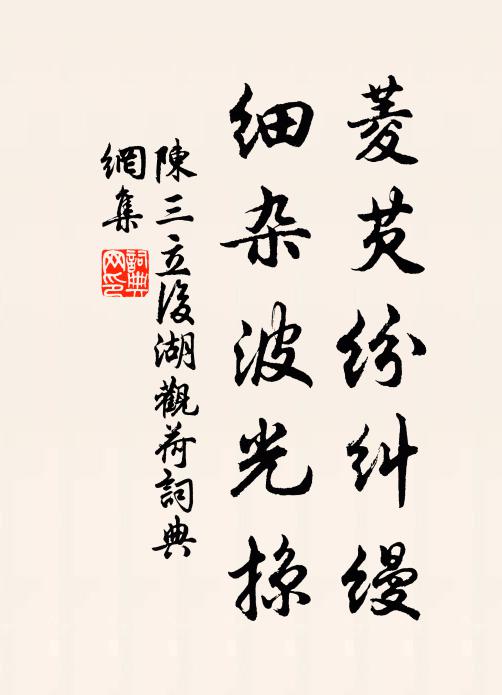 菱芡纷糾缦
细杂波光掠
陳三立後湖觀荷詞典
網集
詞典网印